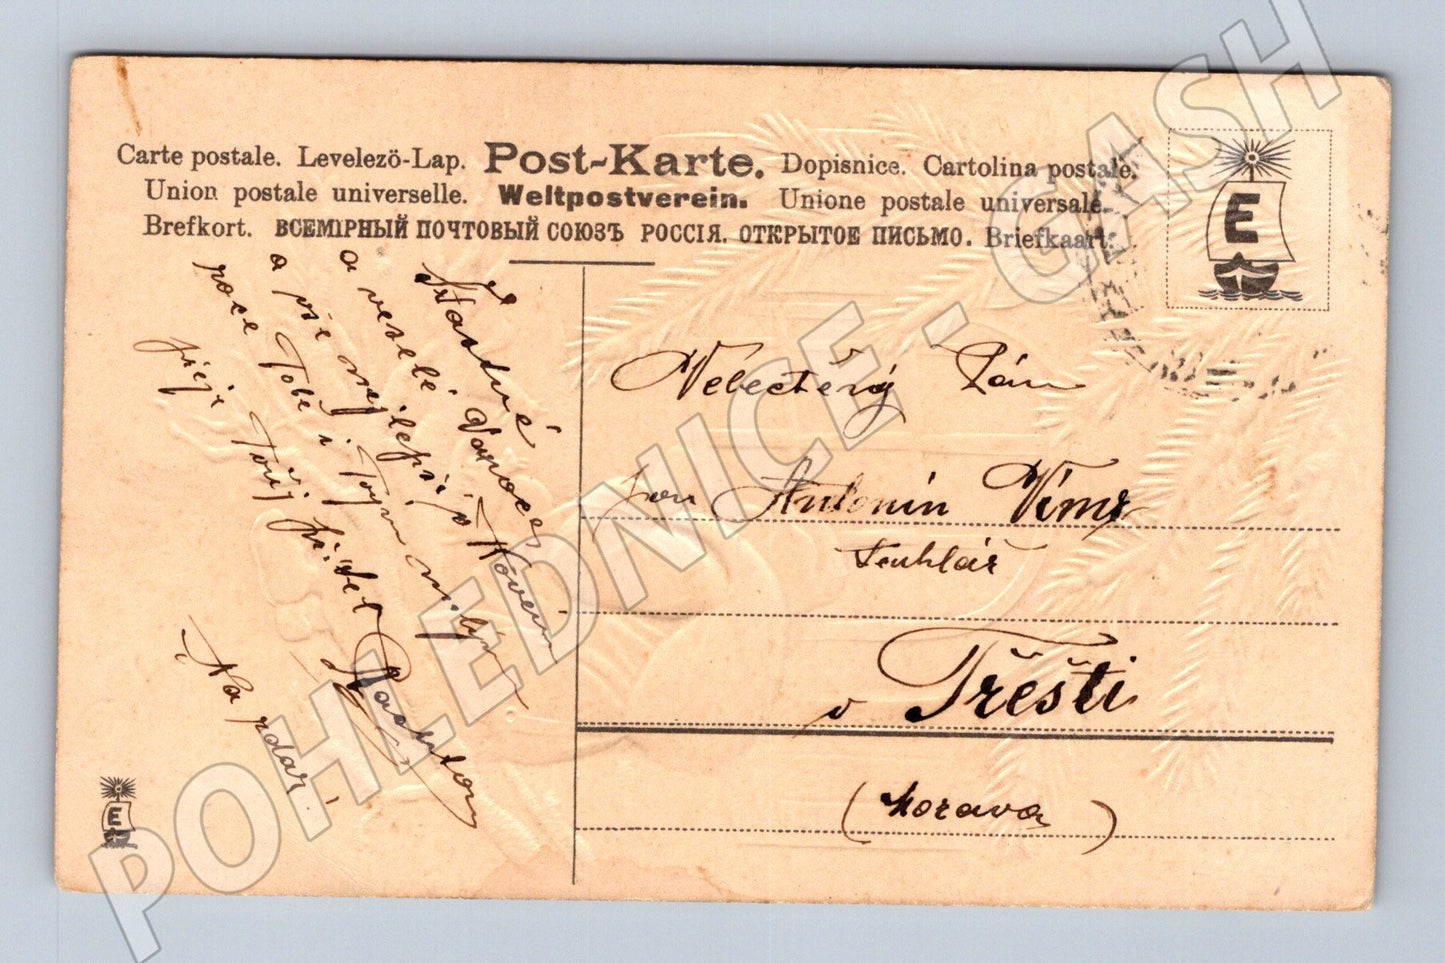 Carte postale. Levelezö-Lap. Post-Karte. Dopisnice. Cartolina postale.
Union postale universelle. Weltpostverein. Unione postale universale.
Brefkort. ВСЕМІРНЫЙ ПОЧТОВЫЙ СОЮЗЪ РОССІЯ. ОТКРЫТОЕ ПИСЬМО. Briefkaart.
E
Šťastné
a veselé vánoce
a vše nejlepší Novém
roce Tobě i Tvým milým
přeje Tvůj přítel
Na zdar!
Velectěný Pán
pan Antonín
truhlář
v Třešti
(Morava)
E
POHLEDNICE - CASH